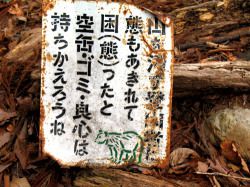 態もあきれて
困(態)ったと
空缶ゴミ・良心は
持ちかえろうね